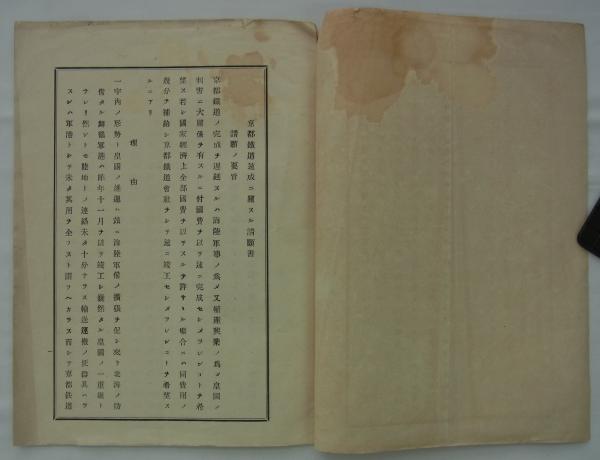 京都鐵道速成ニ關スル請願書
請願ノ要旨
京都鐵道ノ完成ヲ遲延スルハ海陸軍事ノ爲メ又殖產興業ノ爲メ皇國ノ
利害ニ大關係ヲ有スルニ付國費ヲ以テ速ニ完成セシメラレンコトヲ希
望ス若シ國家經濟上全部國費ヲ以テスルヲ許サヽル塲合ニハ同費用ノ
幾分ヲ補給シ京都鐵道會社ヲシテ速ニ竣工セシメラレンコトヲ希望ス
ルニアリ
理由
一宇內ノ形勢ト皇國ノ進運ハ益ニ海陸軍備ノ擴張ヲ促シ來リ北海ノ防
備タル舞鶴軍港ハ昨年十一月ヲ以テ竣工シ儼然タル皇國ノ一重鎭ト
ナレリ然レトモ陸地トノ連絡未タ十分ナラス輸送運搬ノ便備具ハラ
スレハ軍港トシテ未タ其用ヲ全フスト謂フヘカラス而シテ京都鐵道
一